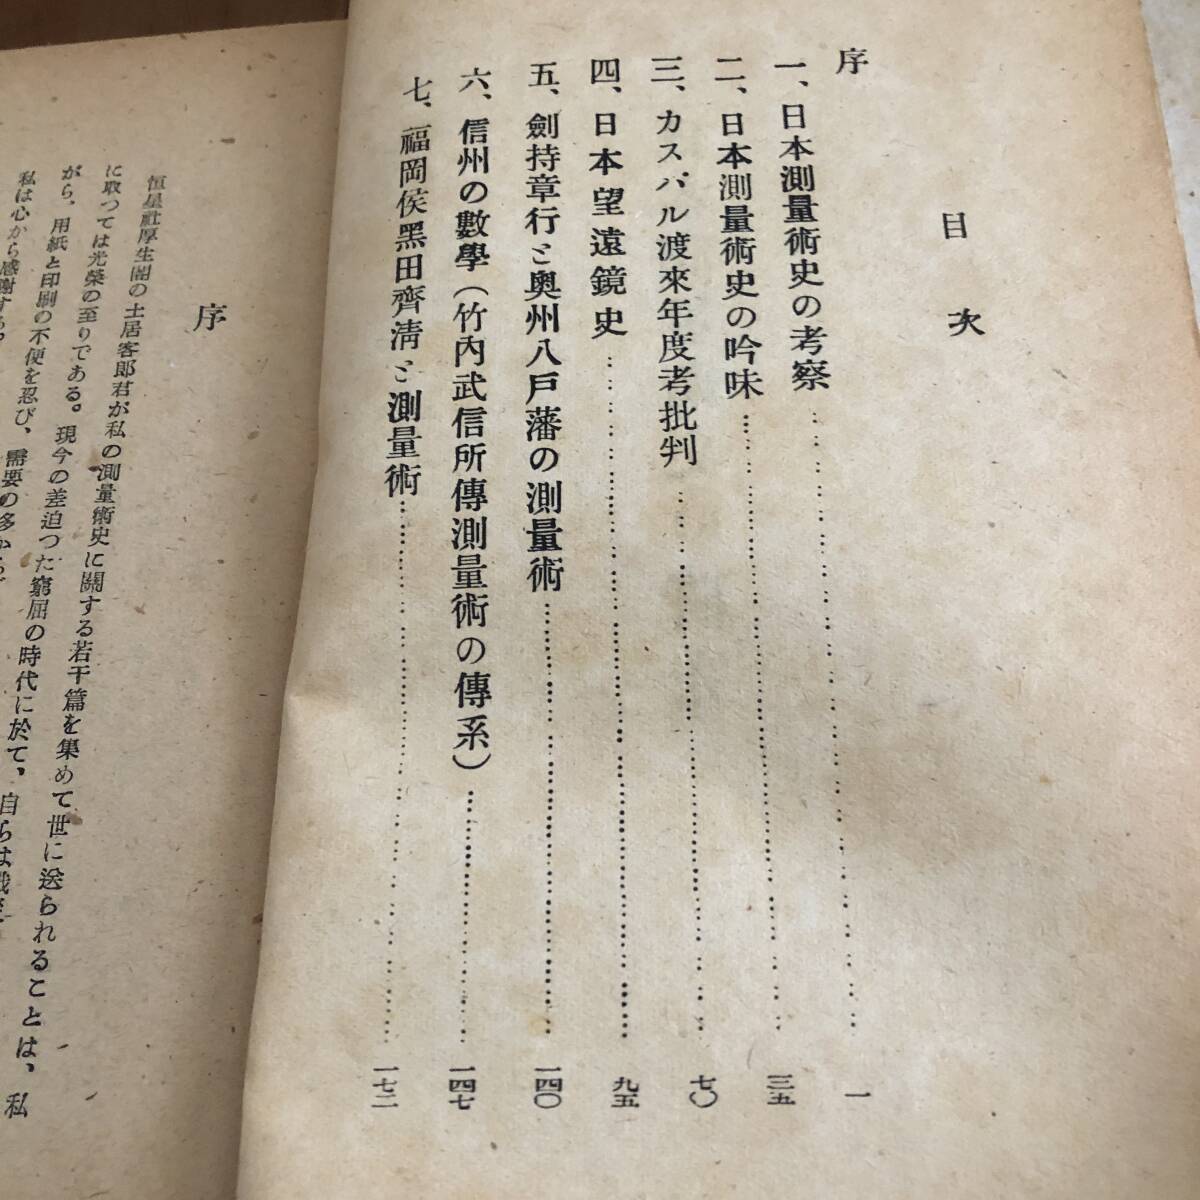 目次
序
一、日本測量術史の考察……一
二、日本測量術史の吟味……三五
三、カスパル渡來年度考批判……七〇
四、日本望遠鏡史……九五
五、劍持章行と奥州八戸藩の測量術……一四〇
六、信州の數學(竹內武信所傳測量術の傳系)……一四七
七、福岡侯黑田齊淸と測量術……一七二
序
恒星社厚生閣の土居客郎君が私の測量術史に關する若干篇を集めて世に送られることは、私
に取つては光榮の至りである。現今の差迫つた窮屈の時代に於て、自らは
がら、用紙と印刷の不便を忍び、需要の多か
私は心から感謝する。